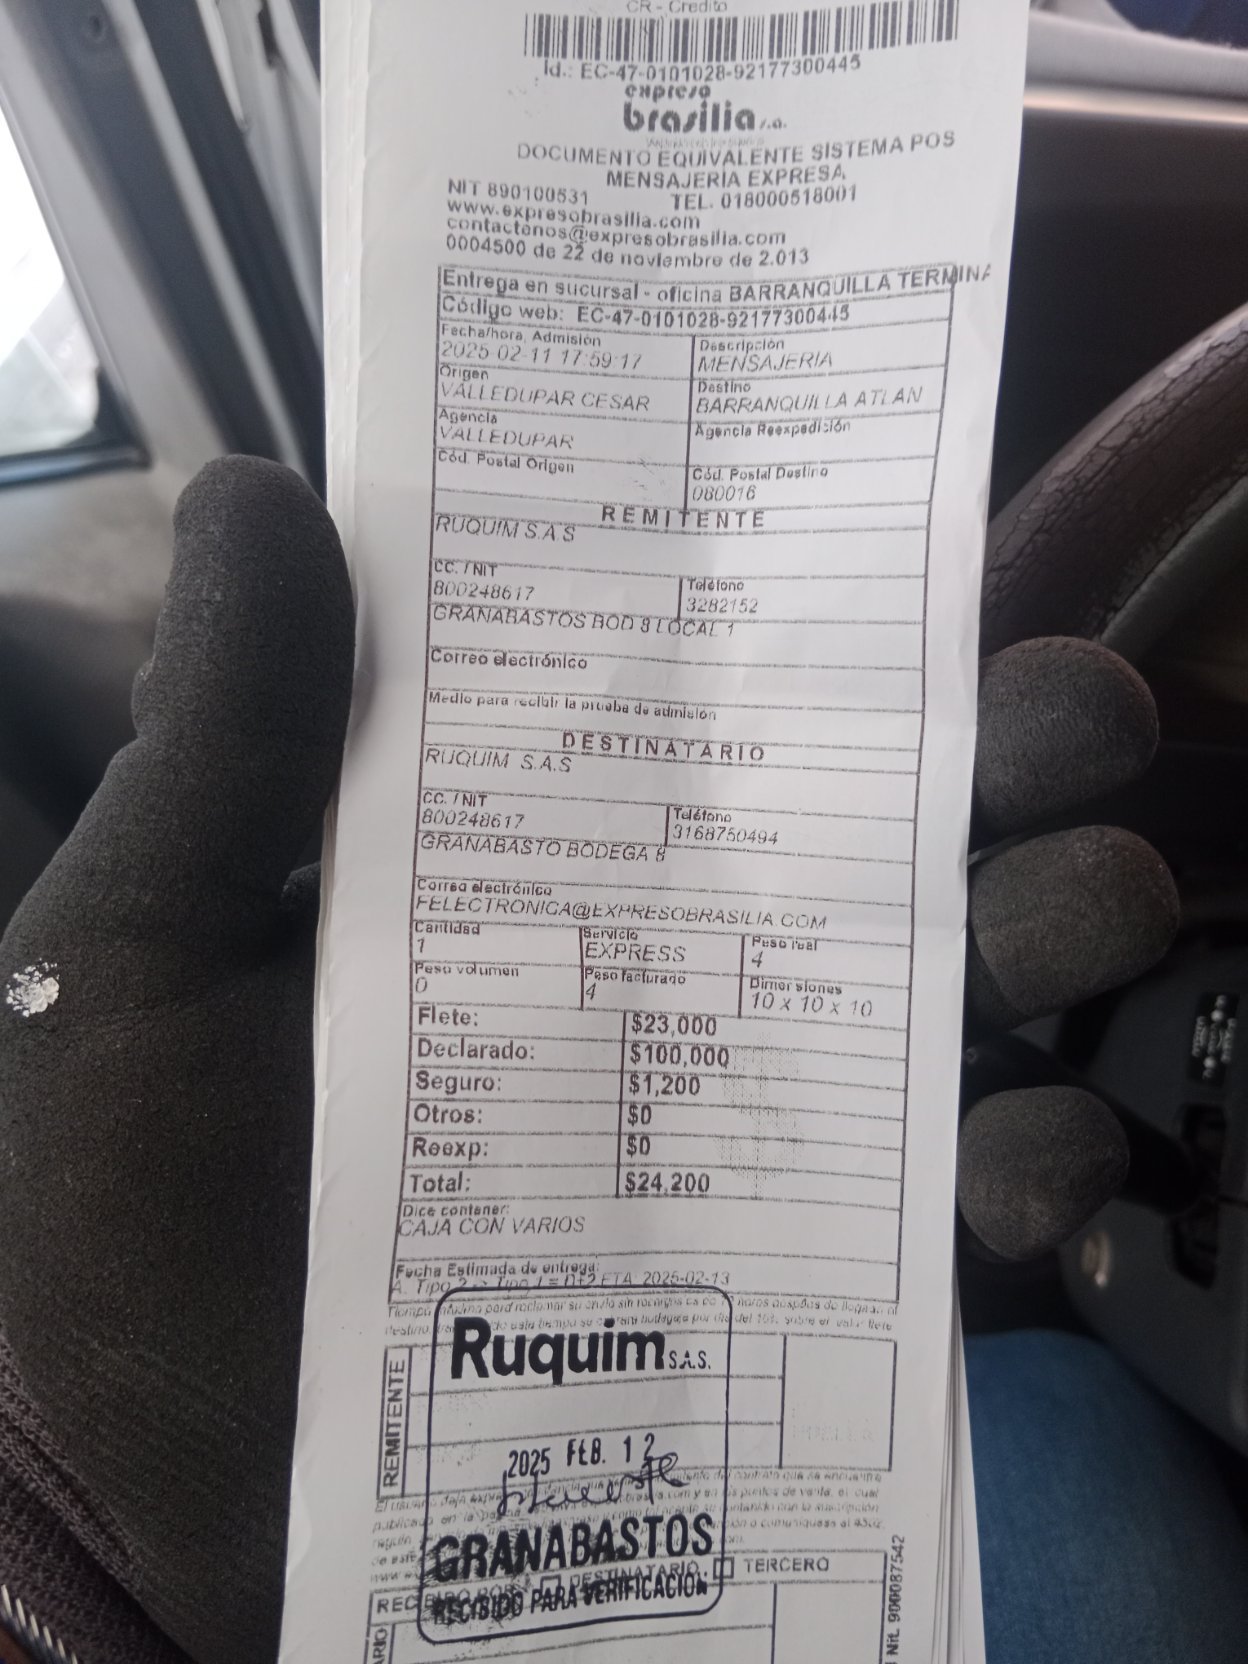 CR - Credito
Id.: EC-47-0101028-92177300445
expreso
brasilia s.a.
DOCUMENTO EQUIVALENTE SISTEMA POS
MENSAJERIA EXPRESA
NIT 890100531 TEL. 018000518001
www.expresobrasilia.com
contactenos@expresobrasilia.com
0004500 de 22 de noviembre de 2.013
Entrega en sucursal - oficina BARRANQUILLA TERMINA
Código web: EC-47-0101028-92177300445
Fecha/hora, Admisión Descripción
2025-02-11 17:59:17 MENSAJERIA
Origen Destino
VALLEDUPAR CESAR BARRANQUILLA ATLAN
Agencia Agencia Reexpedición
VALLEDUPAR
Cód. Postal Origen Cód. Postal Destino
080016
REMITENTE
RUQUIM S.A.S
CC. / NIT Teléfono
800248617 3282152
GRANABASTOS BOD 8 LOCAL 1
Correo electrónico
Medio para recibir la prueba de admisión
DESTINATARIO
RUQUIM S.A.S
CC. / NIT Teléfono
800248617 3168750494
GRANABASTO BODEGA 8
Correo electrónico
FELECTRONICA@EXPRESOBRASILIA.COM
Cantidad Servicio Peso real
1 EXPRESS 4
Peso volumen Peso facturado Dimensiones
0 4 10 x 10 x 10
Flete: $23,000
Declarado: $100,000
Seguro: $1,200
Otros: $0
Reexp: $0
Total: $24,200
Dice contener:
CAJA CON VARIOS
Fecha Estimada de entrega:
A. Tipo 2 -> Tipo 1 = D+2 ETA: 2025-02-13
para reclamar su envío sin recargos es de horas después de llegar al
destino, este tiempo se bodegaje por día del sobre el valor flete
REMITENTE
Ruquim S.A.S.
2025 FEB. 12
del contrato que se encuentra
publicado en la página puntos de venta, el cual
GRANABASTOS
RECIBIDO POR: DESTINATARIO TERCERO
RECIBIDO PARA VERIFICACIÓN
Nit. 900087542